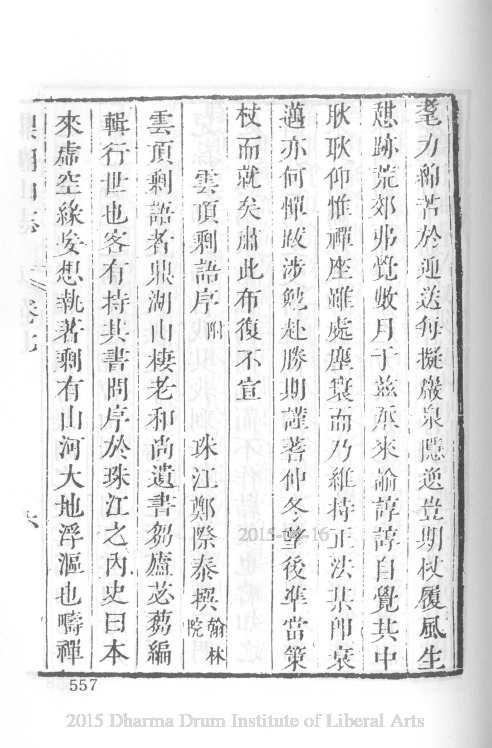 耄力綿苦於迎送每擬嚴泉隱逸豈期杖履風生
愆跡荒郊弗覺數月于兹承來諭諄諄自覺其中
耿耿仰惟禪座雖處塵寰而乃維持正法某卽衰
邁亦何憚跋涉勉赴勝期謹著仲冬望後準當策
杖而就矣肅此布復不宣
雲頂剩語序附 珠江鄭際泰撰翰林院
雲頂剩語者鼎湖山棲老和尚遺書芻廬苾蒭編
輯行世也客有持其書問序於珠江之內史曰本
來虛空緣妄想執著剩有山河大地浮漚也疇禪
鼎湖山志 卷七 六
557
2015-04-16
2015 Dharma Drum Institute of Liberal Arts